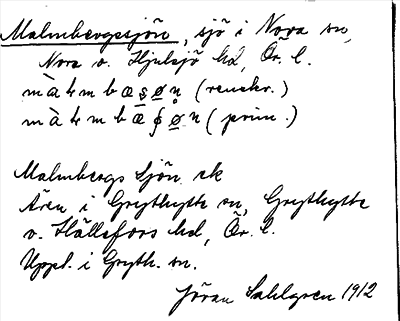 Malmbergssjön, sjö i Nora sn,
Nora o. Hjulsjö hd, Ör. l.
(renskr.)
(prim.)
Malmbergs Sjön ek
Ären i Grythytte sn, Grythytte
o. Hällefors hd, Ör. l.
Uppl. i Gryth. sn.
Jöran Sahlgren 1912